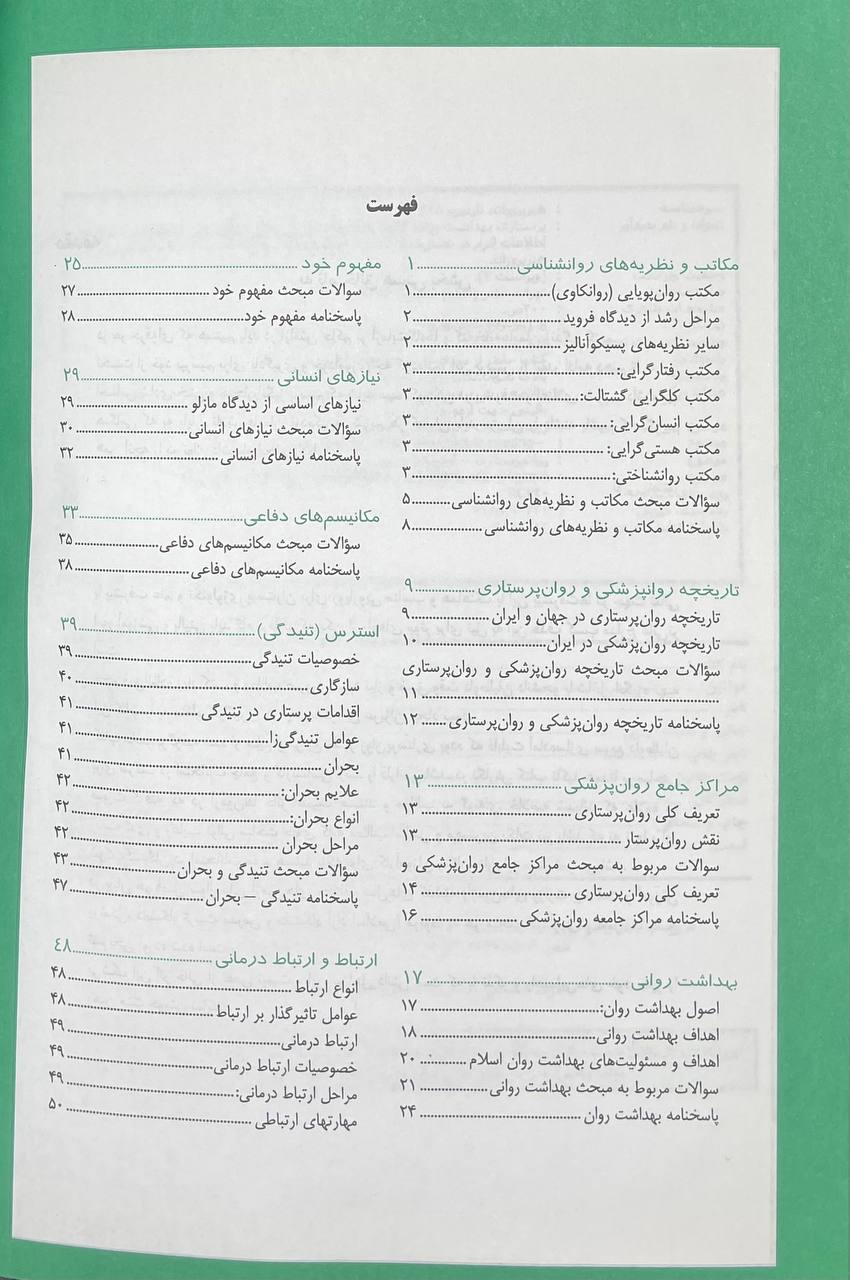 فهرست
مکاتب و نظریه‌های روانشناسی........................۱
مکتب روان‌پویایی (روانکاوی)........................۱
مراحل رشد از دیدگاه فروید........................۲
سایر نظریه‌های پسیکوآنالیز........................۲
مکتب رفتارگرایی:........................۳
مکتب کلگرایی گشتالت:........................۳
مکتب انسان‌گرایی:........................۳
مکتب هستی‌گرایی:........................۳
مکتب روانشناختی:........................۳
سؤالات مبحث مکاتب و نظریه‌های روانشناسی..........۵
پاسخنامه مکاتب و نظریه‌های روانشناسی..................۸
تاریخچه روانپزشکی و روان‌پرستاری..................۹
تاریخچه روان‌پرستاری در جهان و ایران..................۹
تاریخچه روان‌پزشکی در ایران........................۱۰
سؤالات مبحث تاریخچه روان‌پزشکی و روان‌پرستاری
........................۱۱
پاسخنامه تاریخچه روان‌پزشکی و روان‌پرستاری.......۱۲
مراکز جامع روان‌پزشکی........................۱۳
تعریف کلی روان‌پرستاری........................۱۳
نقش روان‌پرستار........................۱۳
سوالات مربوط به مبحث مراکز جامع روان‌پزشکی و
تعریف کلی روان‌پرستاری........................۱۴
پاسخنامه مراکز جامعه روان‌پزشکی........................۱۶
بهداشت روانی........................۱۷
اصول بهداشت روان:........................۱۷
اهداف بهداشت روانی........................۱۸
اهداف و مسئولیت‌های بهداشت روان اسلام............۲۰
سوالات مربوط به مبحث بهداشت روانی..................۲۱
پاسخنامه بهداشت روان........................۲۴
مفهوم خود........................۲۵
سوالات مبحث مفهوم خود........................۲۷
پاسخنامه مفهوم خود........................۲۸
نیازهای انسانی........................۲۹
نیازهای اساسی از دیدگاه مازلو........................۲۹
سؤالات مبحث نیازهای انسانی........................۳۰
پاسخنامه نیازهای انسانی........................۳۲
مکانیسم‌های دفاعی........................۳۳
سؤالات مبحث مکانیسم‌های دفاعی........................۳۵
پاسخنامه مکانیسم‌های دفاعی........................۳۸
استرس (تنیدگی)........................۳۹
خصوصیات تنیدگی........................۳۹
سازگاری........................۴۰
اقدامات پرستاری در تنیدگی........................۴۱
عوامل تنیدگی‌زا........................۴۱
بحران........................۴۱
علایم بحران:........................۴۲
انواع بحران:........................۴۲
مراحل بحران........................۴۲
سؤالات مبحث تنیدگی و بحران........................۴۳
پاسخنامه تنیدگی – بحران........................۴۷
ارتباط و ارتباط درمانی........................۴۸
انواع ارتباط........................۴۸
عوامل تاثیرگذار بر ارتباط........................۴۸
ارتباط درمانی........................۴۹
خصوصیات ارتباط درمانی........................۴۹
مراحل ارتباط درمانی:........................۴۹
مهارتهای ارتباطی........................۵۰